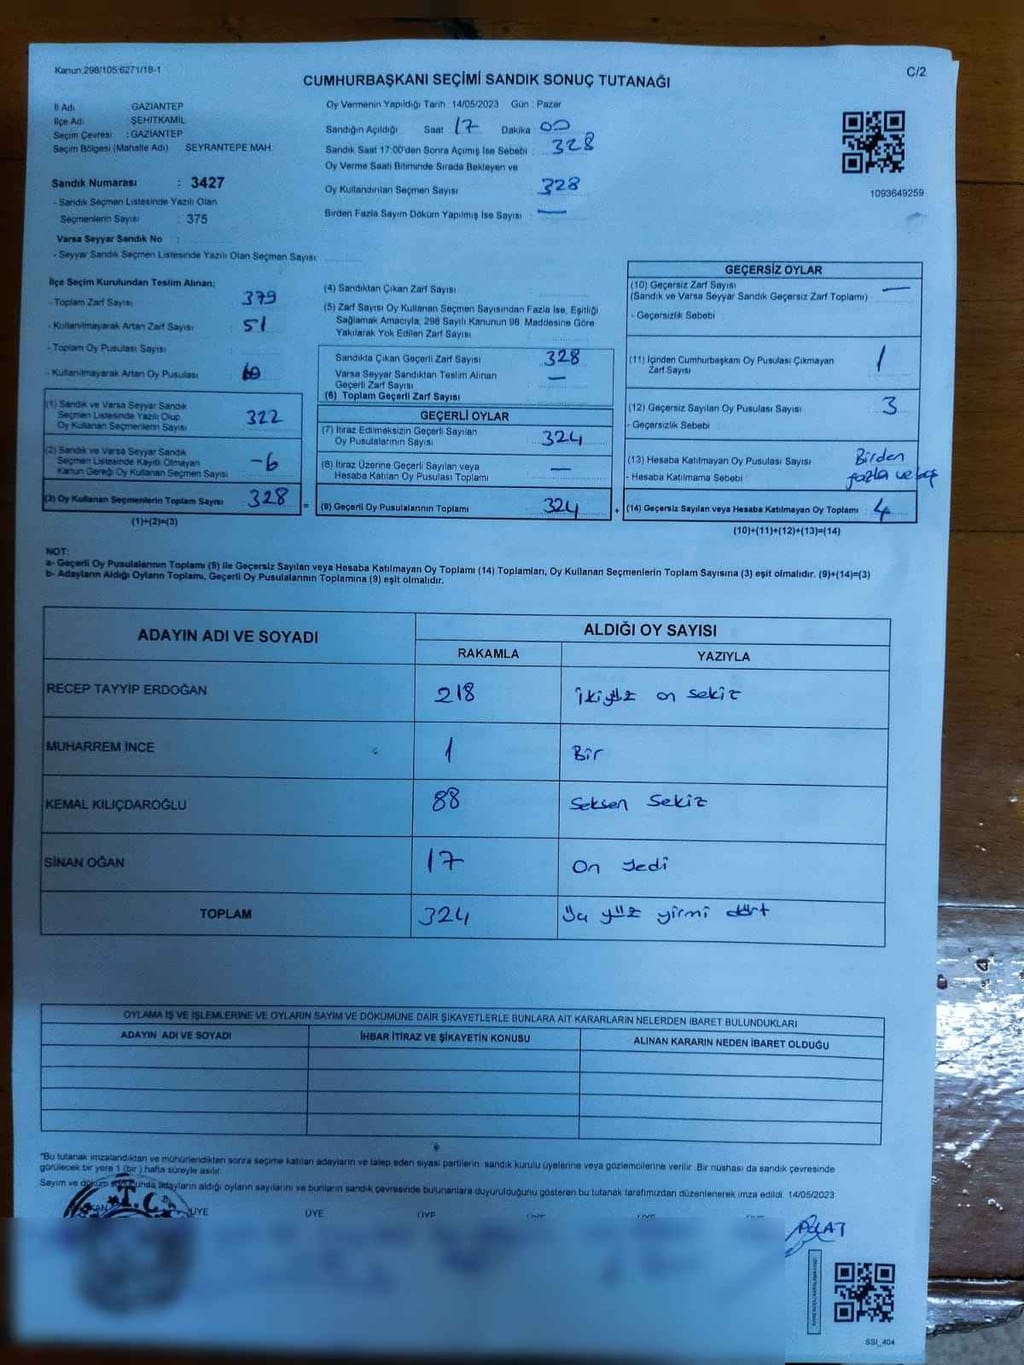 Kanun.298/105.6271/18-1
C/2
CUMHURBAŞKANI SEÇİMİ SANDIK SONUÇ TUTANAĞI
İl Adı GAZİANTEP
İlçe Adı ŞEHİTKAMİL
Seçim Çevresi :GAZİANTEP
Seçim Bölgesi (Mahalle Adı) SEYRANTEPE MAH.
Sandık Numarası : 3427
- Sandık Seçmen Listesinde Yazılı Olan
Seçmenlerin Sayısı : 375
Varsa Seyyar Sandık No :
- Seyyar Sandık Seçmen Listesinde Yazılı Olan Seçmen Sayısı:
Oy Vermenin Yapıldığı Tarih :14/05/2023 Gün : Pazar
Sandığın Açıldığı Saat : 17 Dakika 00
Sandık Saat 17:00'den Sonra Açımış İse Sebebi : 328
Oy Verme Saati Bitiminde Sırada Bekleyen ve
Oy Kullandırılan Seçmen Sayısı 328
Birden Fazla Sayım Döküm Yapılmış İse Sayısı —
1093649259
İlçe Seçim Kurulundan Teslim Alınan;
- Toplam Zarf Sayısı 379
- Kullanılmayarak Artan Zarf Sayısı 51
- Toplam Oy Pusulası Sayısı
- Kullanılmayarak Artan Oy Pusulası
(1) Sandık ve Varsa Seyyar Sandık
Seçmen Listesinde Yazılı Olup
Oy Kullanan Seçmenlerin Sayısı 322
(2) Sandık ve Varsa Seyyar Sandık
Seçmen Listesinde Kayıtlı Olmayan
Kanun Gereği Oy Kullanan Seçmen Sayısı -6
(3) Oy Kullanan Seçmenlerin Toplam Sayısı 328
(1)+(2)=(3)
(4) Sandıktan Çıkan Zarf Sayısı
(5) Zarf Sayısı Oy Kullanan Seçmen Sayısından Fazla İse, Eşitliği
Sağlamak Amacıyla; 298 Sayılı Kanunun 98. Maddesine Göre
Yakılarak Yok Edilen Zarf Sayısı
Sandıkta Çıkan Geçerli Zarf Sayısı 328
Varsa Seyyar Sandıktan Teslim Alınan
Geçerli Zarf Sayısı —
(6) Toplam Geçerli Zarf Sayısı
GEÇERLİ OYLAR
(7) İtiraz Edilmeksizin Geçerli Sayılan
Oy Pusulalarının Sayısı 324
(8) İtiraz Üzerine Geçerli Sayılan veya
Hesaba Katılan Oy Pusulaları Toplamı —
= (9) Geçerli Oy Pusulalarının Toplamı 324
GEÇERSİZ OYLAR
(10) Geçersiz Zarf Sayısı —
(Sandık ve Varsa Seyyar Sandık Geçersiz Zarf Toplamı)
- Geçersizlik Sebebi
(11) İçinden Cumhurbaşkanı Oy Pusulası Çıkmayan
Zarf Sayısı 1
(12) Geçersiz Sayılan Oy Pusulası Sayısı 3
- Geçersizlik Sebebi
(13) Hesaba Katılmayan Oy Pusulası Sayısı Birden
- Hesaba Katılmama Sebebi fazla ve boş
+ (14) Geçersiz Sayılan veya Hesaba Katılmayan Oy Toplamı 4
(10)+(11)+(12)+(13)=(14)
NOT:
a- Geçerli Oy Pusulalarının Toplamı (9) ile Geçersiz Sayılan veya Hesaba Katılmayan Oy Toplamı (14) Toplamları, Oy Kullanan Seçmenlerin Toplam Sayısına (3) eşit olmalıdır. (9)+(14)=(3)
b- Adayların Aldığı Oyların Toplamı, Geçerli Oy Pusulalarının Toplamına (9) eşit olmalıdır.
ADAYIN ADI VE SOYADI ALDIĞI OY SAYISI
RAKAMLA YAZIYLA
RECEP TAYYİP ERDOĞAN 218 ikiyüz on sekiz
MUHARREM İNCE 1 Bir
KEMAL KILIÇDAROĞLU 88 Seksen Sekiz
SİNAN OĞAN 17 On Yedi
TOPLAM 324 Üç yüz yirmi dört
OYLAMA İŞ VE İŞLEMLERİNE VE OYLARIN SAYIM VE DÖKÜMÜNE DAİR ŞİKAYETLERLE BUNLARA AİT KARARLARIN NELERDEN İBARET BULUNDUKLARI
ADAYIN ADI VE SOYADI İHBAR İTİRAZ VE ŞİKAYETİN KONUSU ALINAN KARARIN NEDEN İBARET OLDUĞU
"Bu tutanak imzalandıktan ve mühürlendikten sonra seçime katılan adayların ve talep eden siyasi partilerin sandık kurulu üyelerine veya gözlemcilerine verilir. Bir nüshası da sandık çevresinde
görülecek bir yere 1 (bir ) hafta süreyle asılır.
Sayım ve döküm adayların aldığı oyların sayılarını ve bunların sandık çevresinde bulunanlara duyurulduğunu gösteren bu tutanak tarafımızdan düzenlenerek imza edildi. 14/05/2023
T.C.
ÜYE ÜYE ÜYE
POLAT
SSI_404